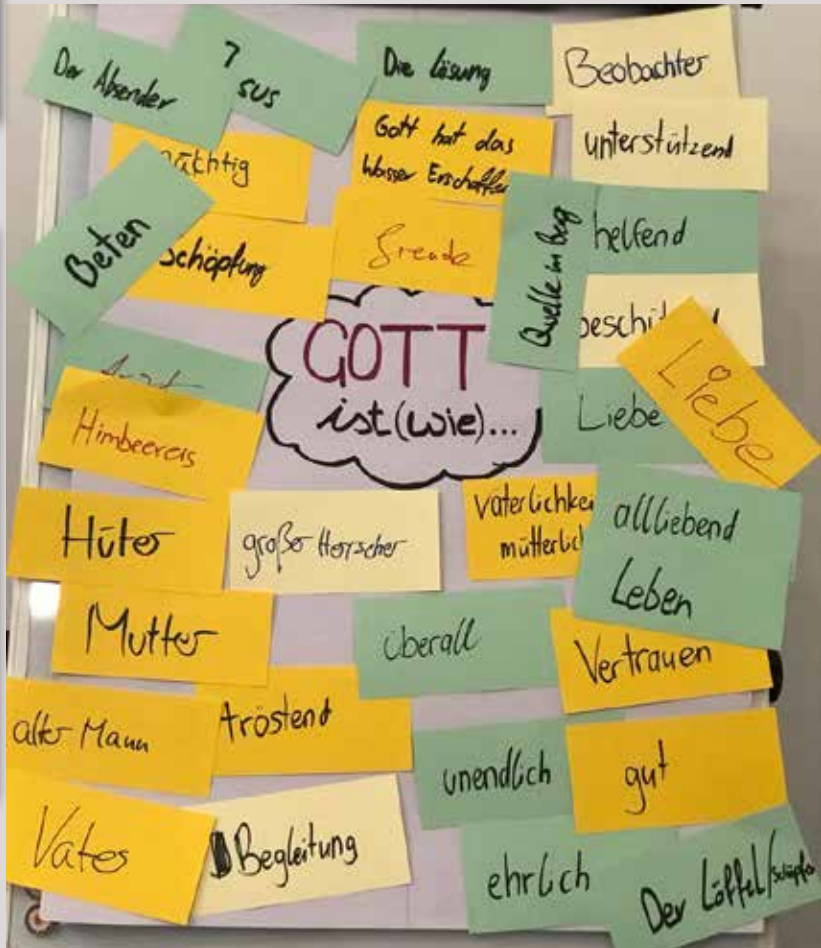 Der Absender
7
sus
Die Lösung
Beobachter
Gott hat das
Wasser Erschaffen
unterstützend
Beten
Schöpfung
Freude
Quelle im Berg
helfend
GOTT
ist (wie)...
Liebe
Liebe
Himbeereis
Hüter
großer Herrscher
mütterlich
allliebend
Leben
Mutter
überall
Vertrauen
alter Mann
tröstend
unendlich
gut
Vater
Begleitung
ehrlich
Der Löffel/